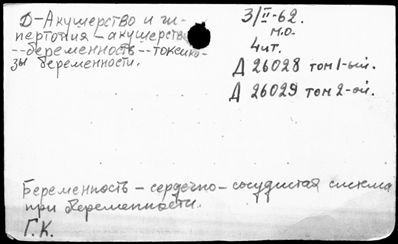 Д-Акушерство и ги-
пертония - акушерство
--беременность--токсико-
зы беременности.
3/II-62.
м.о.
4шт.
Д 26028 том 1-ый.
Д 26029 том 2-ой.
Беременность - сердечно-сосудистая система
при беременности.
Г.К.